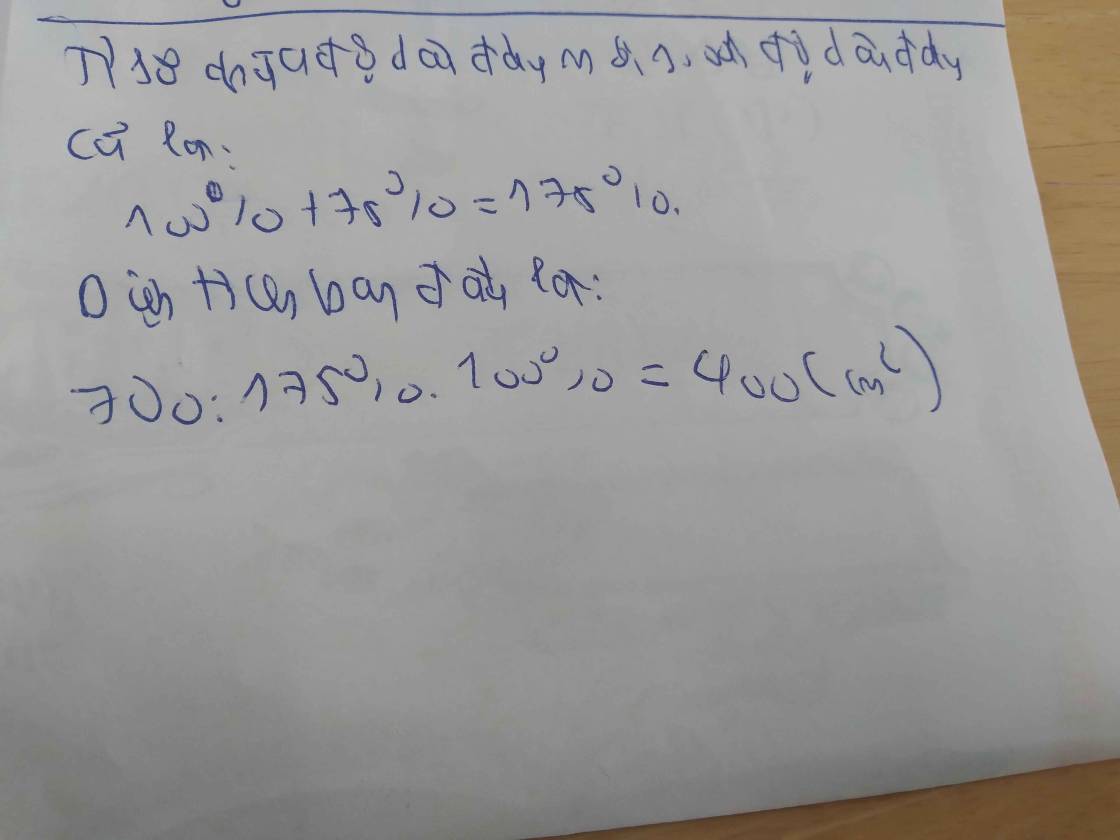 Tỉ số giữa độ dài đáy mới so với độ dài đáy
cũ là:
100% + 75% = 175%.
Diện tích ban đầu là:
700 : 175% . 100% = 400 (cm²)